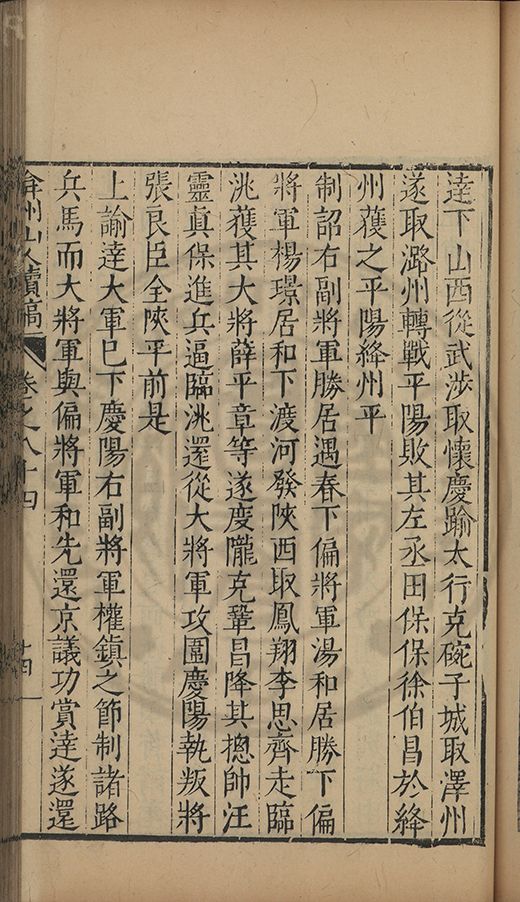 逹下山西從武涉取懷慶踰太行克碗子城取澤州
遂取潞州轉戰平陽敗其左丞田保保徐伯昌於絳
州獲之平陽絳州平
制詔右副將軍勝居遇春下偏將軍湯和居勝下偏
將軍楊璟居和下渡河發陝西取鳳翔李思齊走臨
洮獲其大將薛平章等遂度隴克鞏昌降其摠帥汪
靈真保進兵逼臨洮還從大將軍攻圍慶陽執叛將
張良臣全陝平前是
上諭逹大軍巳下慶陽右副將軍權鎮之節制諸路
兵馬而大將軍與偏將軍和先還京議功賞逹遂還
弇州山人續稿 卷之八十四 十四